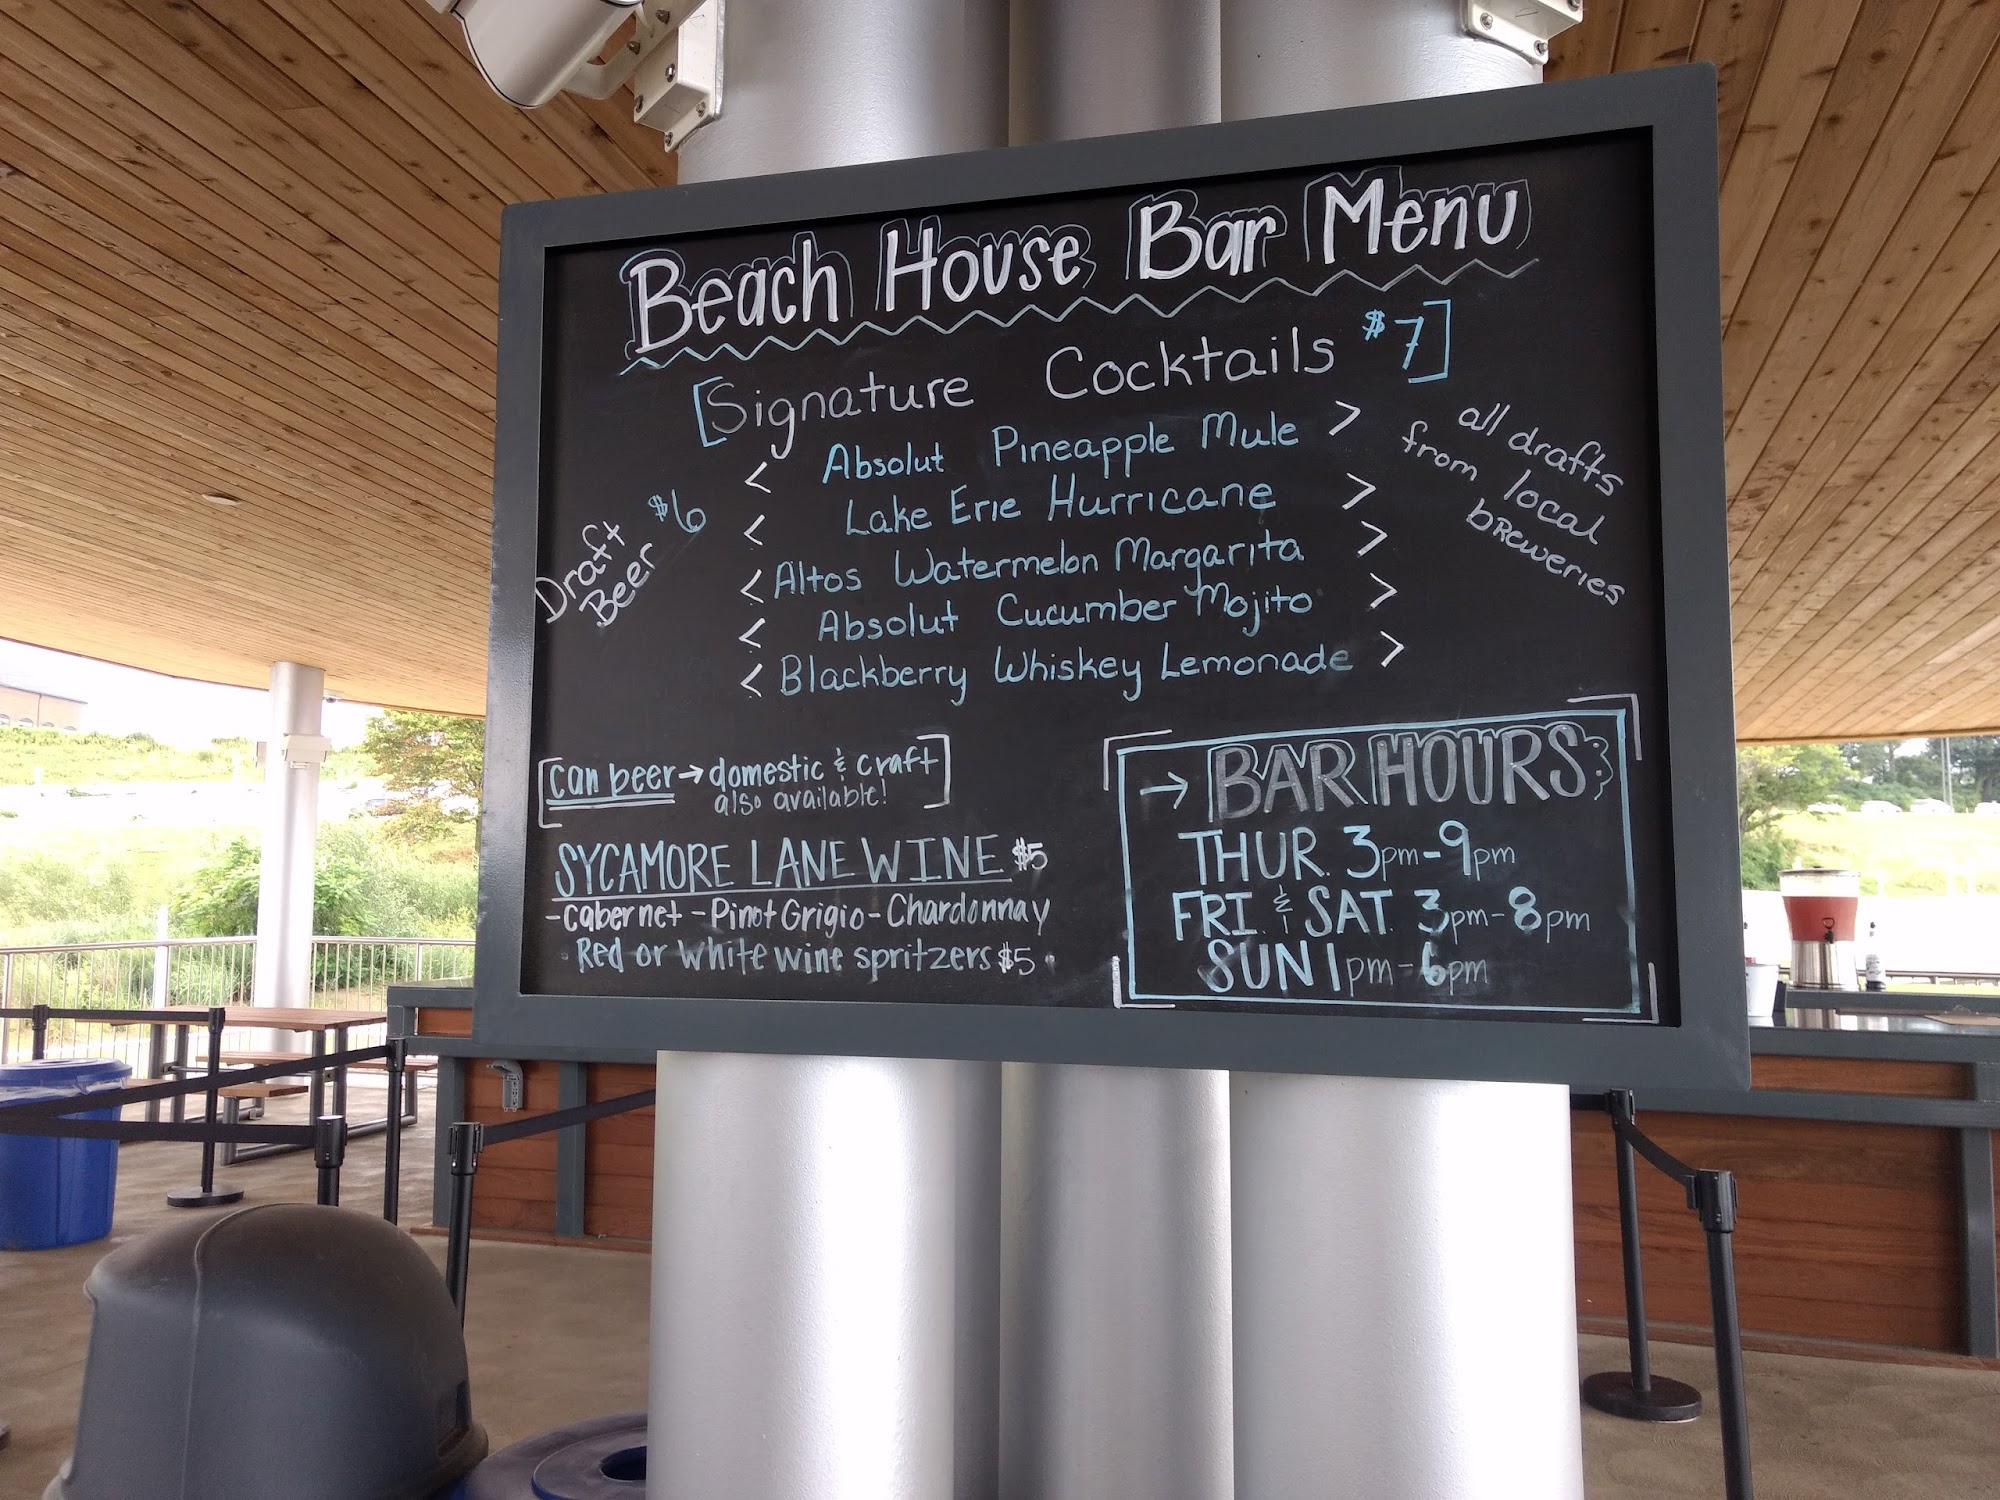 Beach House Bar Menu
[Signature Cocktails $7]
< Absolut Pineapple Mule >
< Lake Erie Hurricane >
< Altos Watermelon Margarita >
< Absolut Cucumber Mojito >
< Blackberry Whiskey Lemonade >
Draft
Beer $6
all drafts
from local
breweries
[can beer → domestic & craft]
also available!
SYCAMORE LANE WINE $5
- Cabernet - Pinot Grigio - Chardonnay
· Red or white wine spritzers $5 ·
→ BAR HOURS:
THUR. 3pm - 9pm
FRI. & SAT. 3pm - 8pm
SUN 1pm - 6pm